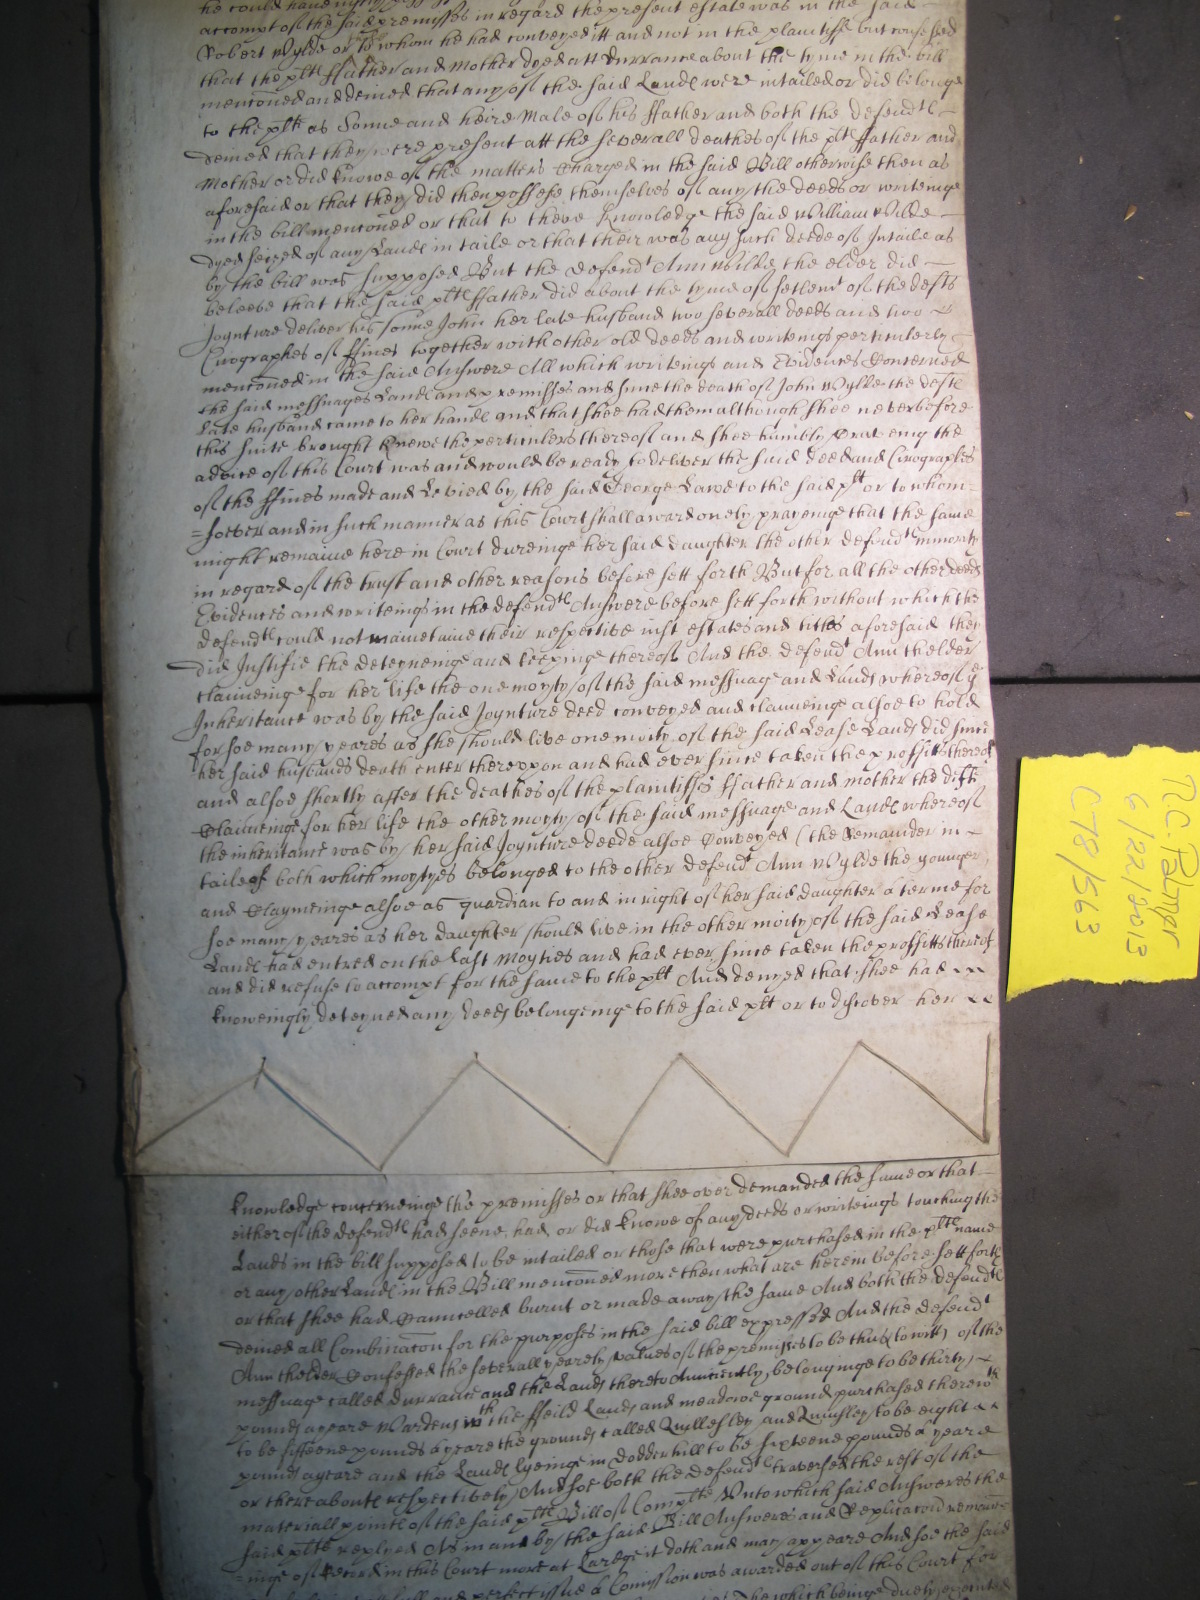 he could have
accompt of the said premisses in regard the present estate was in the said
Robert Wylde or to whom he had conveyed itt and not in the plaintiffe but confessed
that the plts ffather and Mother dyed att Durrance about the tyme in the bill
menconed and denied that any of the said Landes were intailed or did belonge
to the plt as Sonne and heire Male of his ffather and both the defendtes
denied that they were present att the severall deathes of the plts ffather and
Mother or did knowe of the matters Charged in the said Bill otherwise then as
aforesaid or that they did then possesse themselves of any the deeds or writeings
in the bill menconed or that to there knowledge the said William Wilde
dyed seized of any Landes in taile or that their was any such deede of Intaile as
by the bill was supposed But the defendt Ann Wilde the elder did
beleeve that the said plts ffather did about the tyme of setlemt of the defts
Joynture deliver his sonne John her late husband two severall deeds and two
Cirographes of ffines together with other old deeds and writeings perticulerly
menconed in the said Answere All which writeings and Evidences Concerned
the said messuages Landes and premisses and since the death of John Wylde the defts
late husband came to her handes and that shee had them although shee never before
this suite brought knewe the perticulers thereof and shee humbly Craveing the
advice of this Court was and would be ready to deliver the said deed and Cirographes
of the ffines made and Levied by the said George Lawe to the said plt or to whom=
=soever and in such manner as this Court shall award onely prayeinge that the same
might remaine here in Court dureinge her said daughter the other defendtes minority
in regard of the trust and other reasons before sett forth But for all the other deeds
Evidences and writeings in the defendtes Answere before sett forth without which the
defendtes could not mainetaine their respective iust estates and titles aforesaid they
did Justifie the deteyneinge and keepinge thereof And the defendt Ann thelder
claimeinge for her life the one moyty of the said messuage and Lands whereof ye
Inheritance was by the said Joynture deed conveyed and claimeinge alsoe to hold
for soe many yeares as she should live one moity of the said Lease Lands did since
her said husbands death enter thereupon and had ever since taken the proffitts thereof
and alsoe shortly after the deathes of the plaintiffs ffather and mother the deft
Claimeinge for her life the other moyty of the said messuage and Landes whereof
the inheritance was by her said Joynture deede alsoe Conveyed (the Remainder in
taile of both which moytyes belonged to the other defendt Ann Wylde the younger)
and Claymeinge alsoe as guardian to and in right of her said daughter a terme for
soe many yeares as her daughter should live in the other moity of the said Lease
Landes had entred on the last Moyties and had ever since taken the proffitts thereof
and did refuse to accompt for the same to the plt And denyed that shee had
knoweingly deteyned any deeds belongeing to the said plt or to discover her
knowledge concerneinge the premisses or that shee ever demanded the same or that
either of the defendtes had seene had or did knowe of any deeds or writeings touching the
Lands in the bill supposed to be intailed or those that were purchased in the plts name
or any other Landes in the Bill menconed more then what are herein before sett forth
or that shee had Cancelled burnt or made away the same And both the defendtes
denied all Combinacon for the purposes in the said bill expressed And the defendt
Ann thelder Confessed the severall yearely values of the premisses to be thus (to witt) of the
messuage called Durrance and the Lands thereto Aunciently belonginge to be thirty
pounds a yeare Wardens wth the ffeild Lands and meadowe ground purchased therewth
to be fifteene pounds a yeare the grounds called Quillesley and Quinsley to be eight
pounds a yeare and the Landes lyeinge in Dodderhill to be sixteene pounds a yeare
or thereaboutes respectively And soe both the defendtes traversed the rest of the
materiall pointes of the said plts Bill of Complte Unto which said Answeres the
said plte replyed As in and by the said Bill Answeres and Replicacon remain=
=inge of Record in this Court more at Large it doth and may appeare And soe the said
and perfect issue a Comission was awarded out of this Court for
The which beinge duely executed
R.C. Palmer
6/22/2013
C78/563